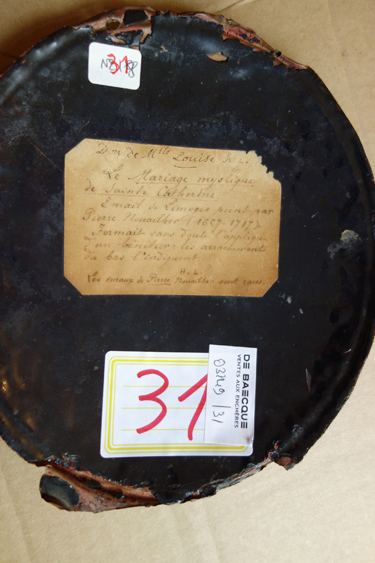 31
Don de Mlle Louise
Le Mariage mystique
de Sainte Catherine
Email de Limoges peint par
Pierre Nouailher
Formait sans doute l'applique
d'un bénitier les arrachements
du bas l'indiquent
Les émaux de Pierre Nouailher sont rares
31
DE BAECQUE
VENTES AUX ENCHÈRES